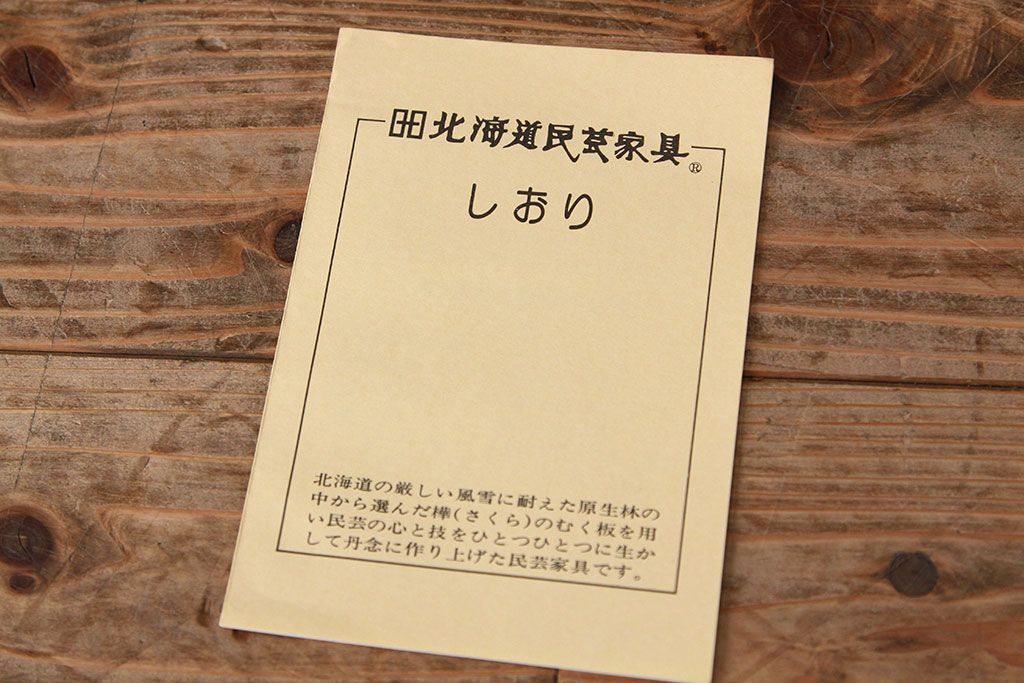 北海道民芸家具®
しおり
北海道の厳しい風雪に耐えた原生林の
中から選んだ樺(さくら)のむく板を用
い民芸の心と技をひとつひとつに生か
して丹念に作り上げた民芸家具です。